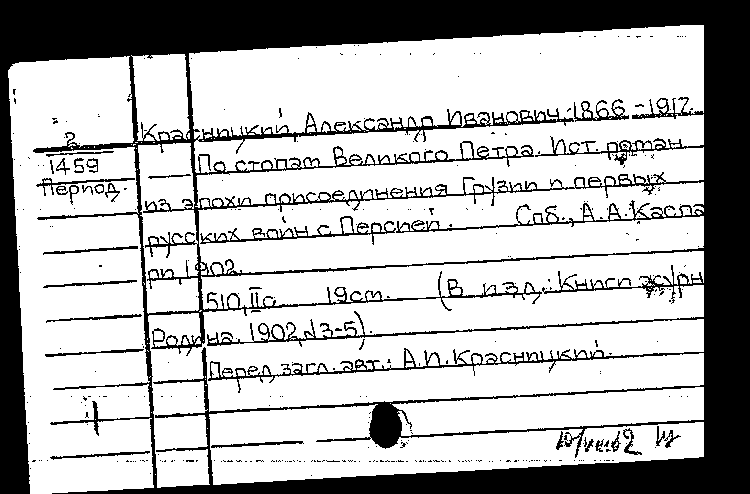 Красницкий, Александр Иванович, 1866-1917.
2
1459
Период.
По стопам Великого Петра. Ист. роман
из эпохи присоединения Грузии и первых
русских войн с Персией. Спб., А.А.Каспа
ри, 1902.
510, IIс. 19см. (В изд.: Книги журн
Родина. 1902, №3-5).
Перед загл. авт.: А.И.Красницкий.